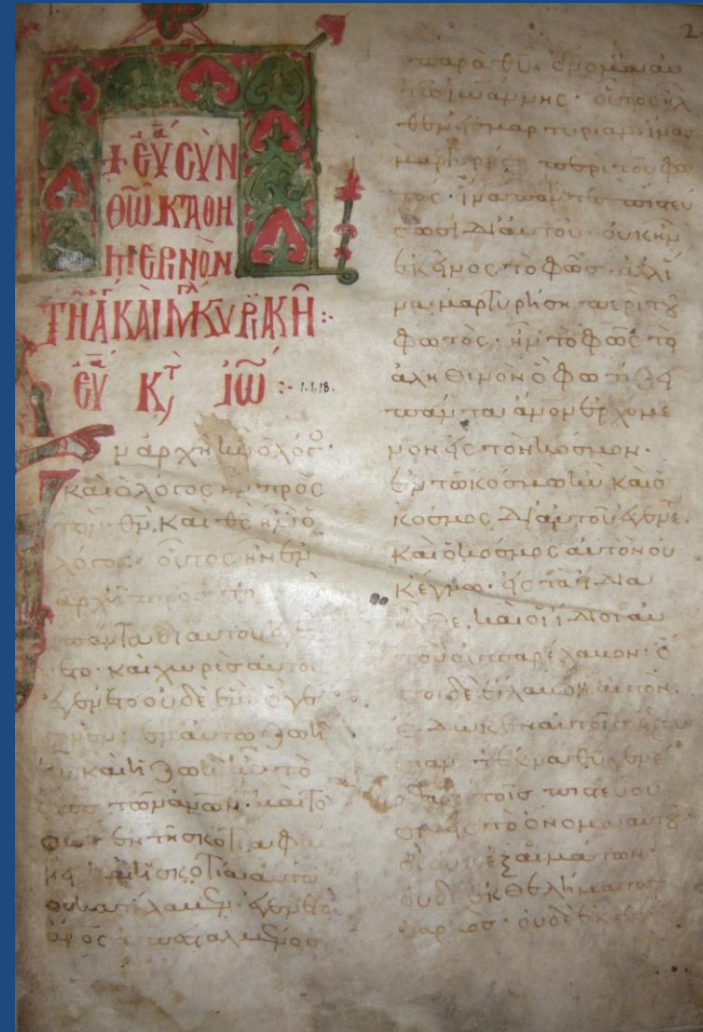 2
+ ΕΥ̅ᾱ ϹΥΝ
ΘΩ̅ ΚΑΘΗ
ΜΕΡΙΝΟΝ
ΤΗ ΑΓ ΚΑΙ Μ ΚΥΡΑΚΗ :
ΕΥ̅ᾱ Κ,Τ ΙΩ̅ :- 1.1.18.
ν ἀρχῆ ἦν ὁ λόγος·
καὶ ὁ λόγος ἦν πρὸς
τὸν θν̅, καὶ θς̅ ἦν ὁ
λόγος· οὗτος ἦν ἐν
ἀρχῆ πρὸς τὸν
πάντα δι αὐτοῦ ἐγέ
ετο· καὶ χωρὶς αὐτοῦ
ἐγένετο οὐδὲ ἓν ὃ γέ
γονεν· ἐν αὐτῶ ζωὴ
ἦν, καὶ ἡ ζωὴ ἦν τὸ
φῶς τῶν ἀνων̅. καὶ τὸ
φῶς ἐν τῆ σκοτία φαί
νει καὶ ἡ σκοτία αὐτὸ
οὐ κατέλαβεν· ἐγένετο
ἀνος̅ ἀπεσταλμένος
παρὰ θυ̅. ὄνομα αὐ
τῶ ἰωάννης· οὗτος ἦλ
θεν εἰς μαρτυρίαν, ἵνα
μαρτυρήση περὶ τοῦ φω
τὸς· ἵνα πάντες πιστεύ
σωσι δι αὐτοῦ· οὐκ ἦν
ἐκεῖνος τὸ φῶς· ἀλλ ἵ
να μαρτυρήση περὶ τοῦ
φωτὸς· ἦν τὸ φῶς τὸ
ἀληθινὸν ὃ φωτίζει
πάντα ἄνον̅ ἐρχόμε
νον εἰς τὸν κόσμον·
ἐν τῶ κόσμω ἦν καὶ ὁ
κόσμος δι αὐτοῦ ἐγένε.
καὶ ὁ κόσμος αὐτὸν οὐ
κ ἔγνω· εἰς τὰ ἴδια
ἦλθε, καὶ οἱ ἴδιοι αὐ
τὸν οὐ παρέλαβον· ὅ
σοι δὲ ἔλαβον αὐτὸν.
ἔδωκεν αὐτοῖς ἐξου
σίαν τέκνα θυ̅ γενέ
σθαι· τοῖς πιστεύου
σιν εἰς τὸ ὄνομα αὐτοῦ
οἳ οὐκ ἐξ αἱμάτων
οὐδὲ ἐκ θελήματος
σαρκὸς· οὐδὲ ἐκ